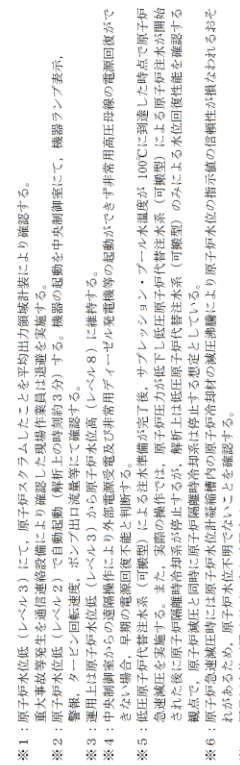 ※1：原子炉水位低（レベル３）にて、原子炉スクラムしたことを平均出力領域計装により確認する。
重大事故等発生を通信連絡設備により確認した現場作業員は退避を実施する。
※2：原子炉水位低（レベル２）で自動起動（解析上の時刻約３分）する。機器の起動を中央制御室にて、機器ランプ表示、
警報、タービン回転速度、ポンプ出口流量等にて確認する。
※3：運用上は原子炉水位低（レベル３）から原子炉水位高（レベル８）に維持する。
※4：中央制御室からの遠隔操作により外部電源受電及び非常用ディーゼル発電機等の起動ができず非常用高圧母線の電源回復がで
きない場合、早期の電源回復不能と判断する。
※5：低圧原子炉代替注水系（可搬型）による注水準備が完了後、サプレッション・プール水温度が100℃に到達した時点で原子炉
急速減圧を実施する。また、実際の操作では、原子炉圧力が低下し低圧原子炉代替注水系（可搬型）による原子炉注水が開始
された後に原子炉隔離時冷却系が停止するが、解析上は低圧原子炉代替注水系（可搬型）のみによる水位回復性能を確認する
観点で、原子炉減圧と同時に原子炉隔離時冷却系は停止する想定としている。
※6：原子炉急速減圧時には原子炉水位計凝縮槽内の原子炉冷却材の減圧沸騰により原子炉水位の指示値の信頼性が損なわれるおそ
れがあるため、原子炉水位不明でないことを確認する。